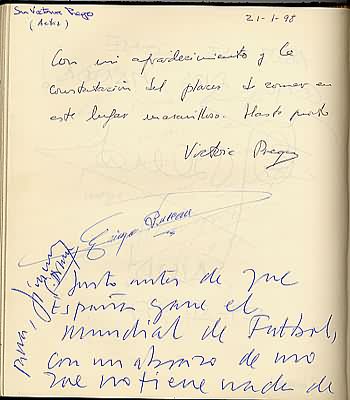 Sra Victoria Prego
(Actriz)
21-1-98
Con mi agradecimiento y la
constatación del placer de comer en
este lugar maravilloso. Hasta pronto
Victoria Prego
Para
Justo antes de que
España gane el
mundial de Futbol,
con un abrazo de uno
que no tiene nada de